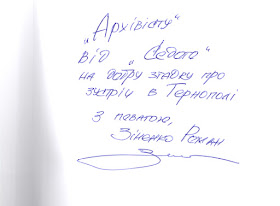 „Архівісту"
від „Сєдого"
на добру згадку про
зустріч в Тернополі
З повагою,
Зіненко Роман